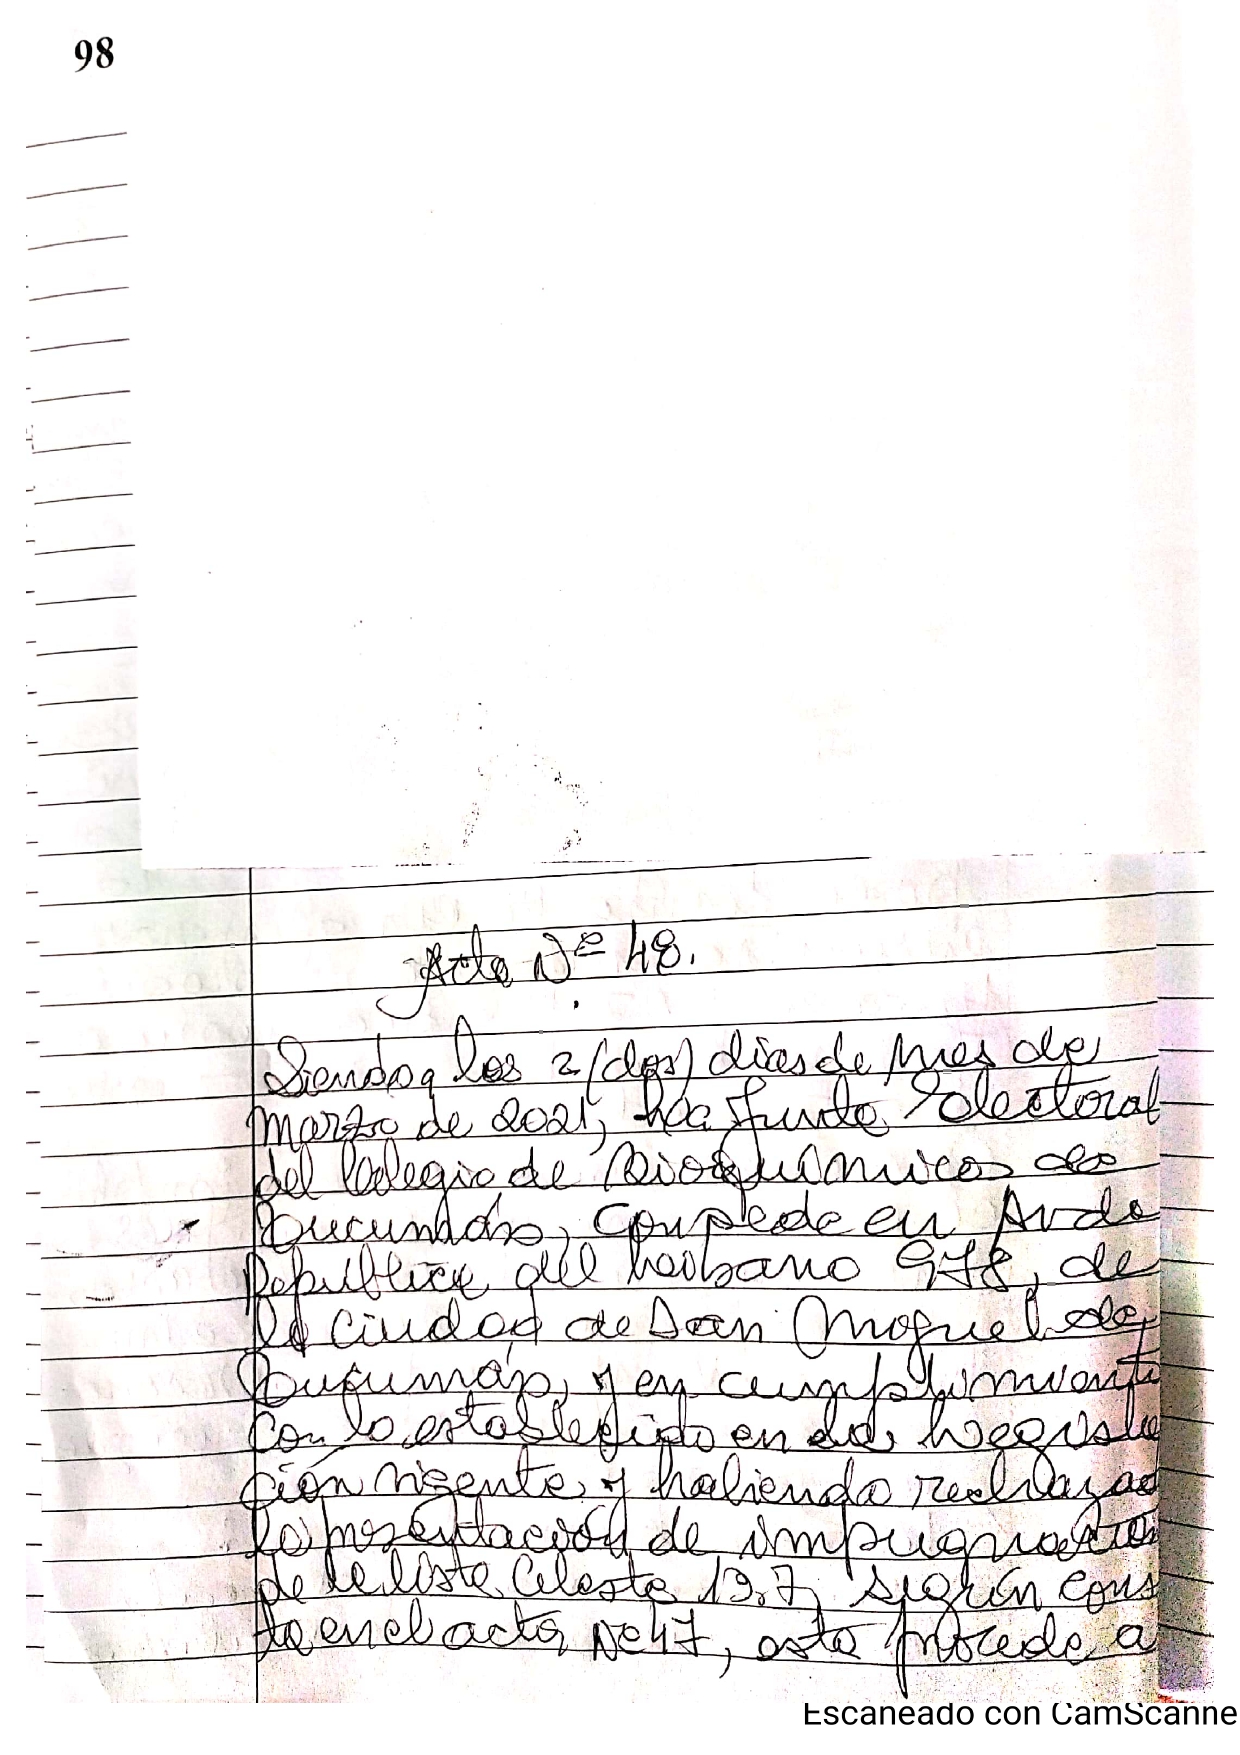 98
Acta Nº 48.
Siendo a los 2 (dos) dias de mes de
marzo de 2021, la Junta Electoral
del Colegio de Bioquímicos de
Tucumán, con sede en Avda
República del Líbano 978, de
la Ciudad de San Miguel de
Tucumán, y en cumplimiento
con lo establecido en la Legisla
ción vigente, y habiendo rechazado
la presentación de impugnación
de la lista Celeste 13.7, según cons
ta en el acta Nº 47, esta procede a
Escaneado con CamScanne